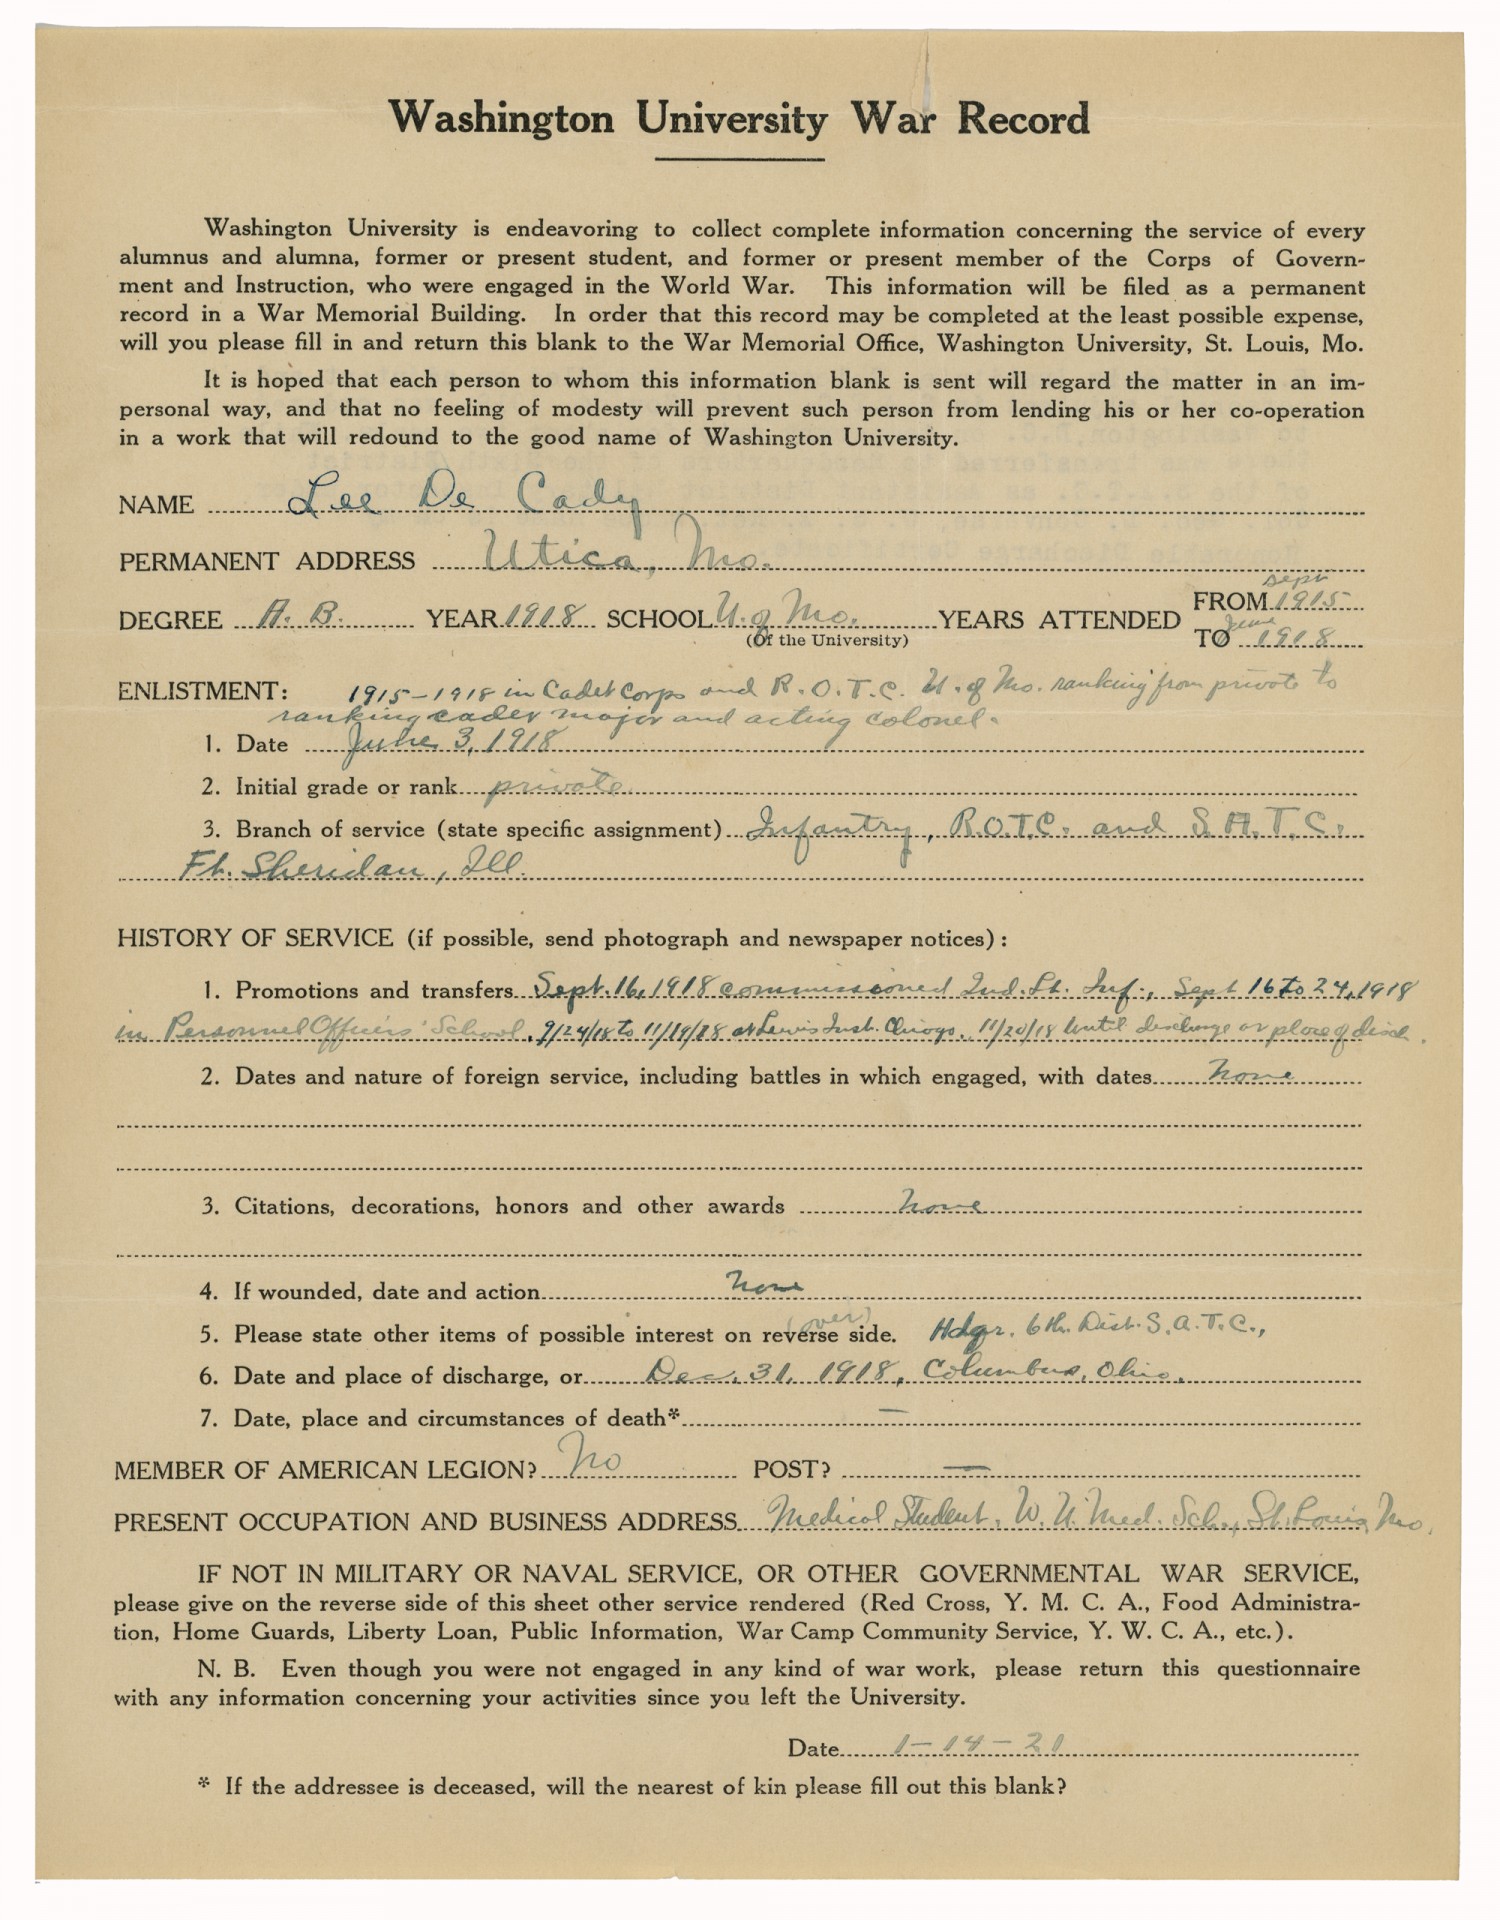 Washington University War Record
Washington University is endeavoring to collect complete information concerning the service of every
alumnus and alumna, former or present student, and former or present member of the Corps of Govern-
ment and Instruction, who were engaged in the World War. This information will be filed as a permanent
record in a War Memorial Building. In order that this record may be completed at the least possible expense,
will you please fill in and return this blank to the War Memorial Office, Washington University, St. Louis, Mo.
It is hoped that each person to whom this information blank is sent will regard the matter in an im-
personal way, and that no feeling of modesty will prevent such person from lending his or her co-operation
in a work that will redound to the good name of Washington University.
NAME Lee De Cady
PERMANENT ADDRESS Utica, Mo.
DEGREE A. B. YEAR 1918 SCHOOL U. of Mo. YEARS ATTENDED FROM Sept 1915
(Of the University) TO June 1918
ENLISTMENT: 1915-1918 in Cadet Corps and R. O. T. C. U. of Mo. ranking from private to
ranking cadet major and acting colonel.
1. Date June 3, 1918
2. Initial grade or rank private
3. Branch of service (state specific assignment) Infantry, R.O.T.C. and S. A. T. C.
Ft. Sheridan, Ill.
HISTORY OF SERVICE (if possible, send photograph and newspaper notices):
1. Promotions and transfers Sept. 16, 1918 commissioned 2nd. Lt. Inf., Sept 16 to 24, 1918
in Personnel Officers' School, 9/24/18 to 11/19/18 at Lewis Inst. Chicago, 11/20/18 until discharge at place of disch.
2. Dates and nature of foreign service, including battles in which engaged, with dates none
3. Citations, decorations, honors and other awards none
4. If wounded, date and action none
(over)
5. Please state other items of possible interest on reverse side. Hdqr. 6th. Dist. S. A. T. C.,
6. Date and place of discharge, or Dec. 31, 1918, Columbus, Ohio.
7. Date, place and circumstances of death* —
MEMBER OF AMERICAN LEGION? No POST? —
PRESENT OCCUPATION AND BUSINESS ADDRESS Medical Student, W. U. Med. Sch., St. Louis, Mo.
IF NOT IN MILITARY OR NAVAL SERVICE, OR OTHER GOVERNMENTAL WAR SERVICE,
please give on the reverse side of this sheet other service rendered (Red Cross, Y. M. C. A., Food Administra-
tion, Home Guards, Liberty Loan, Public Information, War Camp Community Service, Y. W. C. A., etc.).
N. B. Even though you were not engaged in any kind of war work, please return this questionnaire
with any information concerning your activities since you left the University.
Date 1-14-21
* If the addressee is deceased, will the nearest of kin please fill out this blank?